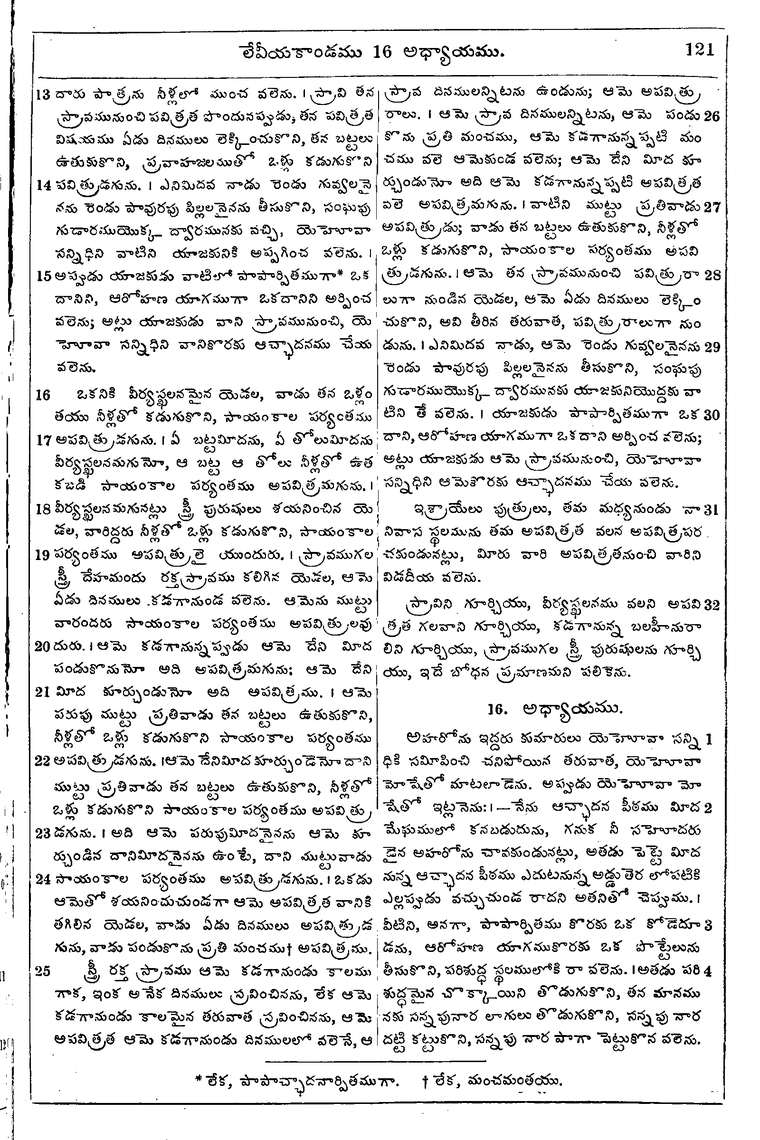 లేవీయకాండము 16 అధ్యాయము. 121
13 దారు పాత్రను నీళ్లలో ముంచ వలెను. । స్రావి తన
స్రావమునుంచి పవిత్రత పొందునప్పుడు, తన పవిత్రత
విషయము ఏడు దినములు లెక్కించుకొని, తన బట్టలు
ఉతుకుకొని, ప్రవాహజలముతో ఒళ్లు కడుగుకొని
14 పవిత్రుడగును. । ఎనిమిదవ నాడు రెండు గువ్వలనై
నను రెండు పావురపు పిల్లలనైనను తీసుకొని, సంఘపు
గుడారముయొక్క ద్వారమునకు వచ్చి, యెహోవా
సన్నిధిని వాటిని యాజకునికి అప్పగించ వలెను. ।
15 అప్పుడు యాజకుడు వాటిలో పాపార్పితముగా* ఒక
దానిని, ఆరోహణ యాగముగా ఒకదానిని అర్పించ
వలెను; అట్లు యాజకుడు వాని స్రావమునుంచి, యె
హోవా సన్నిధిని వానికొరకు ఆచ్ఛాదనము చేయ
వలెను.
16 ఒకనికి వీర్యస్ఖలనమైన యెడల, వాడు తన ఒళ్లం
తయు నీళ్లతో కడుగుకొని, సాయంకాల పర్యంతము
17 అపవిత్రుడగును. । ఏ బట్టమీదను, ఏ తోలుమీదను
వీర్యస్ఖలనమగుమో, ఆ బట్ట ఆ తోలు నీళ్లతో ఉత
కబడి సాయంకాల పర్యంతము అపవిత్రమగును. ।
18 వీర్యస్ఖలనమగునట్లు స్త్రీ పురుషులు శయనించిన యె
డల, వారిద్దరు నీళ్లతో ఒళ్లు కడుగుకొని, సాయంకాల
19 పర్యంతము అపవిత్రులై యుందురు. । స్రావముగల
స్త్రీ దేహమందు రక్తస్రావము కలిగిన యెడల, ఆమె
ఏడు దినములు కడగానుండ వలెను. ఆమెను ముట్టు
వారందరు సాయంకాల పర్యంతము అపవిత్రులవు
20 దురు. । ఆమె కడగానున్నప్పుడు ఆమె దేని మీద
పండుకొనుమో అది అపవిత్రమగును; ఆమె దేని
21 మీద కూర్చుండుమో అది అపవిత్రము. । ఆమె
పరుపు ముట్టు ప్రతివాడు తన బట్టలు ఉతుకుకొని,
నీళ్లతో ఒళ్లు కడుగుకొని సాయంకాల పర్యంతము
22 అపవిత్రుడగును. । ఆమె దేనిమీద కూర్చుండెనో దాని
ముట్టు ప్రతివాడు తన బట్టలు ఉతుకుకొని, నీళ్లతో
ఒళ్లు కడుగుకొని సాయంకాల పర్యంతము అపవిత్రు
23 డగును. । అది ఆమె పరుపుమీదనైనను ఆమె కూ
ర్చుండిన దానిమీదనైనను ఉంటే, దాని ముట్టువాడు
24 సాయంకాల పర్యంతము అపవిత్రుడగును. । ఒకడు
ఆమెతో శయనించుచుండగా ఆమె అపవిత్రత వానికి
తగిలిన యెడల, వాడు ఏడు దినములు అపవిత్రుడ
గును, వాడు పండుకొను ప్రతి మంచము† అపవిత్రము.
25 స్త్రీ రక్త స్రావము ఆమె కడగానుండు కాలము
గాక, ఇంక అనేక దినములు స్రవించినను, లేక ఆమె
కడగానుండు కాలమైన తరువాత స్రవించినను, ఆమె
అపవిత్రత ఆమె కడగానుండు దినములలో వలెనే, ఆ
స్రావ దినములన్నిటను ఉండును; ఆమె అపవిత్రు
రాలు. । ఆమె స్రావ దినములన్నిటను, ఆమె పండు 26
కొను ప్రతి మంచము, ఆమె కడగానున్నప్పటి మం
చము వలె ఆమెకుండ వలెను; ఆమె దేని మీద కూ
ర్చుండుమో అది ఆమె కడగానున్నప్పటి అపవిత్రత
వలె అపవిత్రమగును. । వాటిని ముట్టు ప్రతివాడు 27
అపవిత్రుడు; వాడు తన బట్టలు ఉతుకుకొని, నీళ్లతో
ఒళ్లు కడుగుకొని, సాయంకాల పర్యంతము అపవి
త్రుడగును. । ఆమె తన స్రావమునుంచి పవిత్రురా 28
లుగా నుండిన యెడల, ఆమె ఏడు దినములు లెక్కిం
చుకొని, అవి తీరిన తరువాత, పవిత్రురాలుగా నుం
డును. । ఎనిమిదవ నాడు, ఆమె రెండు గువ్వలనైనను 29
రెండు పావురపు పిల్లలనైనను తీసుకొని, సంఘపు
గుడారముయొక్క ద్వారమునకు యాజకునియొద్దకు వా
టిని తే వలెను. । యాజకుడు పాపార్పితముగా ఒక 30
దాని, ఆరోహణ యాగముగా ఒకదాని అర్పించ వలెను;
అట్లు యాజకుడు ఆమె స్రావమునుంచి, యెహోవా
సన్నిధిని ఆమెకొరకు ఆచ్ఛాదనము చేయ వలెను.
ఇశ్రాయేలు పుత్రులు, తమ మధ్యనుండు నా 31
నివాస స్థలమును తమ అపవిత్రత వలన అపవిత్రపర
చకుండునట్లు, మీరు వారి అపవిత్రతనుంచి వారిని
విడదీయ వలెను.
స్రావిని గూర్చియు, వీర్యస్ఖలనము వలని అపవి 32
త్రత గలవాని గూర్చియు, కడగానున్న బలహీనురా
లిని గూర్చియు, స్రావముగల స్త్రీ పురుషులను గూర్చి
యు, ఇదే బోధన ప్రమాణమని పలికెను.
16. అధ్యాయము.
అహరోను ఇద్దరు కుమారులు యెహోవా సన్ని 1
ధికి సమీపించి చనిపోయిన తరువాత, యెహోవా
మోషేతో మాటలాడెను. అప్పుడు యెహోవా మో
షేతో ఇట్లనెను: । — నేను ఆచ్ఛాదన పీఠము మీద 2
మేఘములో కనబడుదును, గనుక నీ సహోదరు
డైన అహరోను చావకుండునట్లు, అతడు పెట్టె మీద
నున్న ఆచ్ఛాదన పీఠము ఎదుటనున్న అడ్డుతెర లోపటికి
ఎల్లప్పుడు వచ్చుచుండ రాదని అతనితో చెప్పుము. ।
వీటిని, అనగా, పాపార్పితము కొరకు ఒక కోడెదూ 3
డను, ఆరోహణ యాగముకొరకు ఒక పొట్టేలును
తీసుకొని, పరిశుద్ధ స్థలములోకి రా వలెను. । అతడు పరి 4
శుద్ధమైన చొక్కాయిని తొడుగుకొని, తన మానము
నకు సన్నపునార లాగులు తొడుగుకొని, సన్నపు నార
దట్టి కట్టుకొని, సన్నపు నార పాగా పెట్టుకొన వలెను.
* లేక, పాపాచ్ఛాదనార్పితముగా. † లేక, మంచమంతయు.